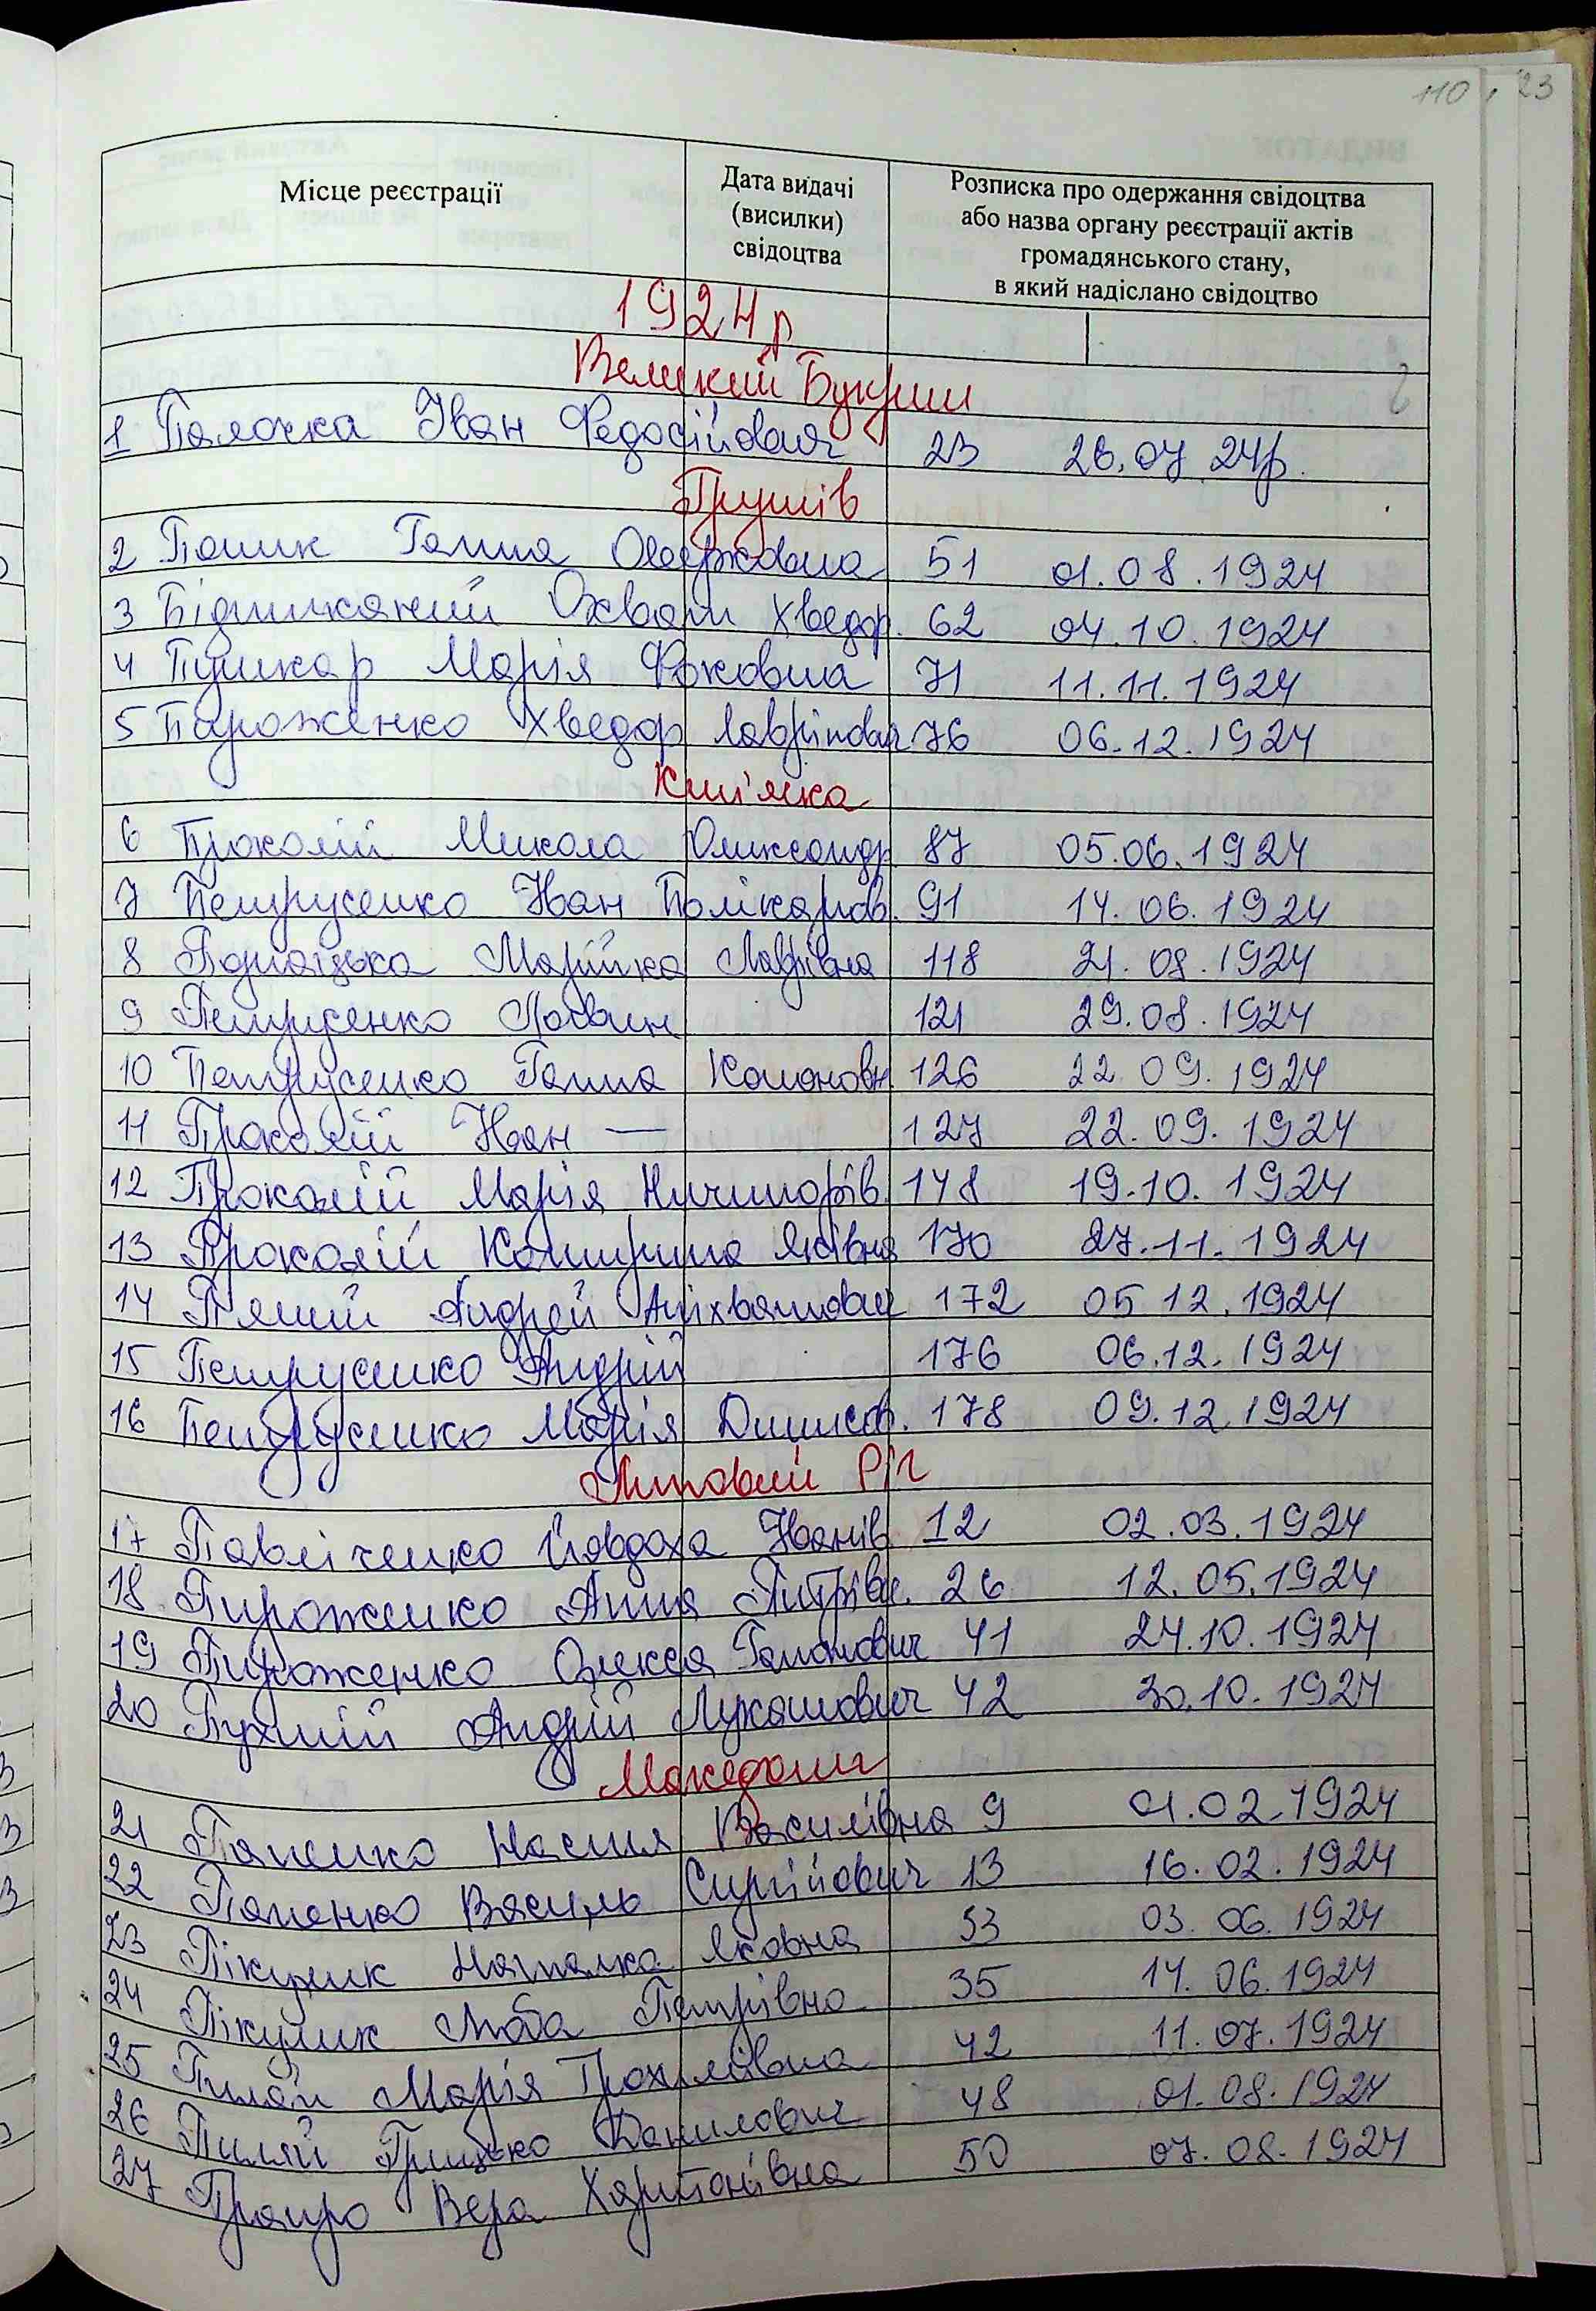 110, 23
Місце реєстрації
Дата видачі
(висилки)
свідоцтва
Розписка про одержання свідоцтва
або назва органу реєстрації актів
громадянського стану,
в який надіслано свідоцтво
1924 р
Великий Букрин
1 Палочка Іван Федосійович 23 26.07 24р.
Грушів
2 Пащик Ганна 51 01.08.1924
3 Хведор. 62 04.10.1924
4 Пушкар Марія Фоковна 71 11.11.1924
5 Пароженко Хведор Лаврінович 76 06.12.1924
6 Прокопій Микола Оликсандр 87 05.06.1924
7 Петрусенко Іван Полікарпов. 91 14.06.1924
8 Марійка Лаврівна 118 21.08.1924
9 Петрусенко Логвин 121 29.08.1924
10 Петрусенко Ганна Кононовн 126 22 09.1924
11 Прокопій Іван — 127 22.09.1924
12 Прокопій Марія Ничипорів. 148 19.10.1924
13 Прокопій Катирина Яківна 170 27.11.1924
14 Андрей 172 05 12.1924
15 Петрусенко Андрій 176 06.12.1924
16 Петрусенко Марія Динисов. 178 09.12.1924
Липовий Ріг
17 Павліченко Йовдоха Іванів. 12 02.03.1924
18 Пироженко Анна Дмитрівн. 26 12.05.1924
19 Пироженко Олекса Гамонович 41 24.10.1924
20 Пухлій Андрій Лукашович 42 30.10.1924
Македони
21 Папенко Настя Василівна 9 01.02.1924
22 Папенко Василь Сиргійович 13 16.02.1924
23 Пікулик Наталка Яковна 33 03.06.1924
24 Пікулик Люба Петрівна 35 14.06.1924
25 Пиляй Марія 42 11.07.1924
26 Пиляй Грицько Данилович 48 01.08.1924
27 Вера Харитонівна 50 07.08.1924